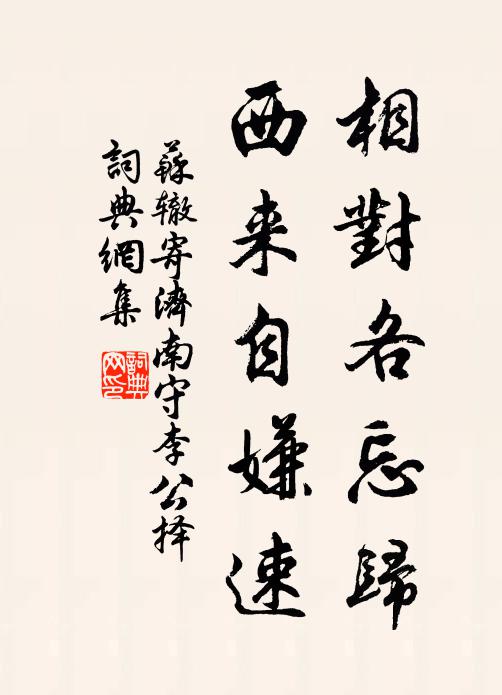 相對各忘歸
西来自嫌速
蘇辙寄濟南守李公择
詞典網集
詞典網印